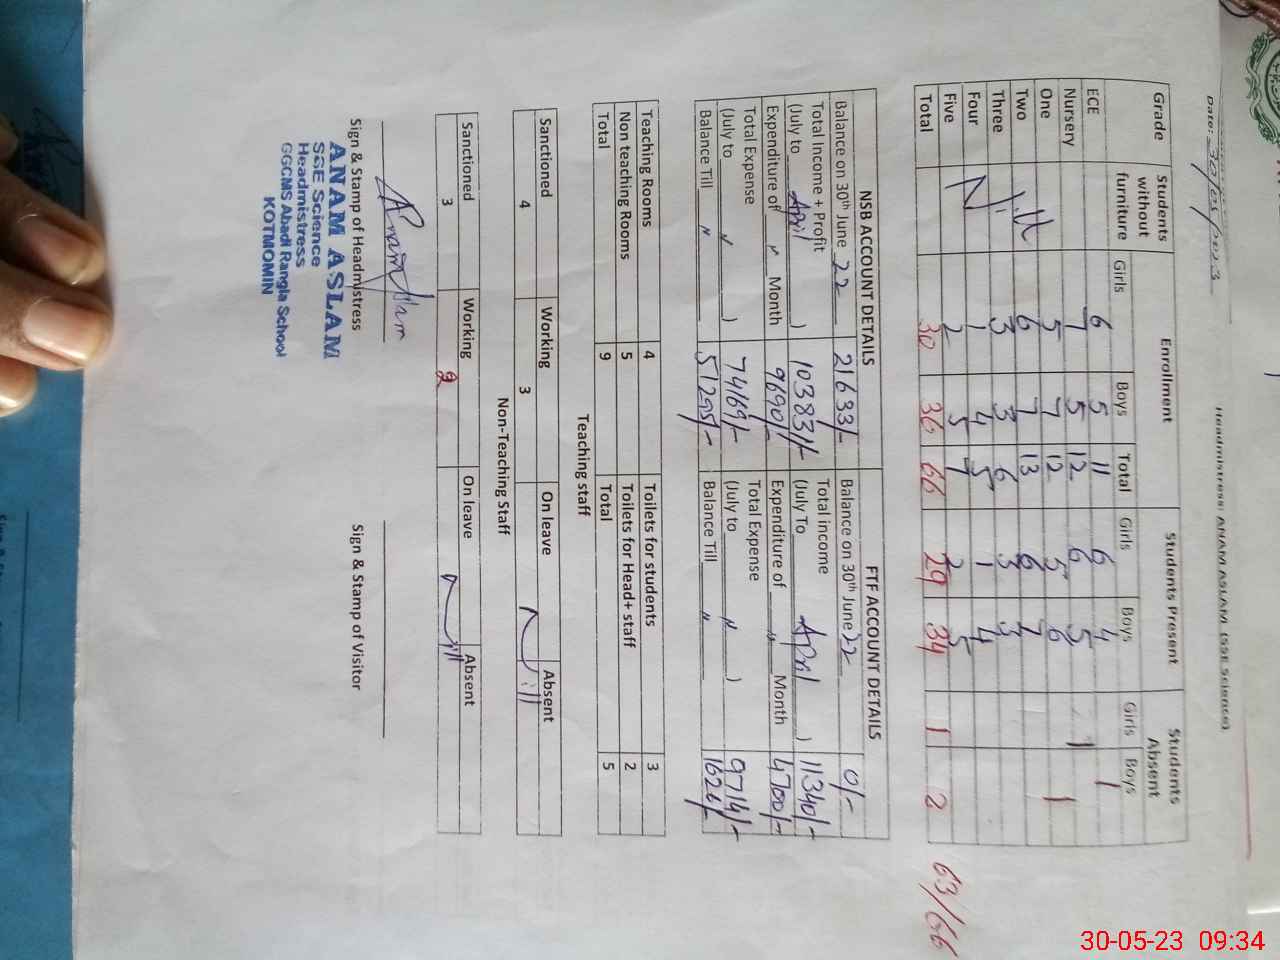 Date: 30/05/2023
Headmistress: ANAM ASLAM (SSE Science)
Grade | Students without furniture | Enrollment | Students Present | Students Absent
Girls | Boys | Total | Girls | Boys | Girls | Boys
ECE | 6 | 5 | 11 | 6 | 4 | 1
Nursery | 7 | 5 | 12 | 6 | 5 | 1
One | 5 | 7 | 12 | 5 | 6 | 1
Two | Nill | 6 | 7 | 13 | 6 | 7
Three | 3 | 3 | 6 | 3 | 3
Four | 1 | 4 | 5 | 1 | 4
Five | 2 | 5 | 7 | 2 | 5
Total | 30 | 36 | 66 | 29 | 34 | 1 | 2
63/66
NSB ACCOUNT DETAILS | FTF ACCOUNT DETAILS
Balance on 30th June 22 | 21633/- | Balance on 30th June 22 | 0/-
Total Income + Profit (July to April ) | 103831/- | Total income (July To April ) | 11340/-
Expenditure of " Month | 9690/- | Expenditure of " Month | 4700/-
Total Expense (July to " ) | 74169/- | Total Expense (July to " ) | 9714/-
Balance Till " | 51295/- | Balance Till " | 1626/-
Teaching Rooms | 4 | Toilets for students | 3
Non teaching Rooms | 5 | Toilets for Head+ staff | 2
Total | 9 | Total | 5
Teaching staff
Sanctioned | Working | On leave | Absent
4 | 3 | Nill
Non-Teaching Staff
Sanctioned | Working | On leave | Absent
3 | 2 | Nill
Anam Aslam
Sign & Stamp of Headmistress | Sign & Stamp of Visitor
ANAM ASLAM
SSE Science
Headmistress
GGCMS Abadi Rangla School
KOTMOMIN
30-05-23 09:34